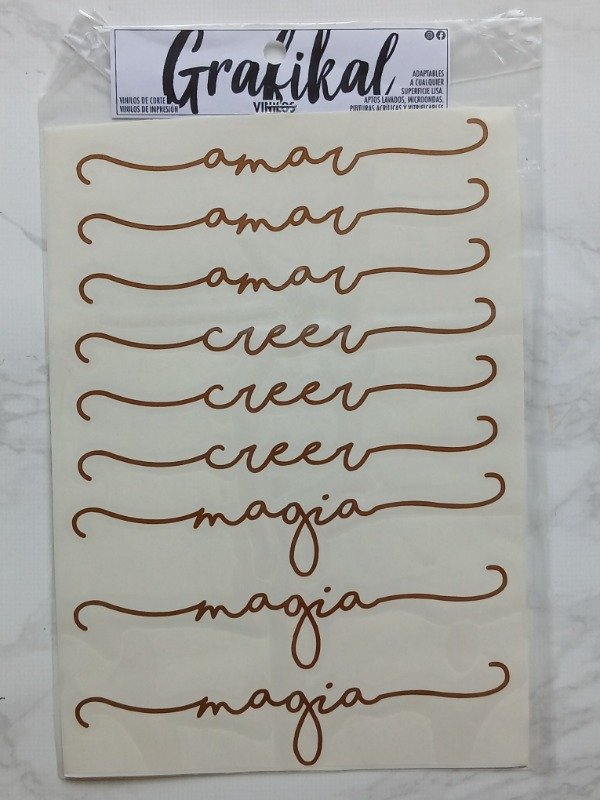 Grafikal
VINILOS
VINILOS DE CORTE
VINILOS DE IMPRESIÓN
ADAPTABLES
A CUALQUIER
SUPERFICIE LISA.
APTOS LAVADOS, MICROONDAS,
PINTURAS ACRILICAS Y VITRIFICABLES
amar
amar
amar
creer
creer
creer
magia
magia
magia